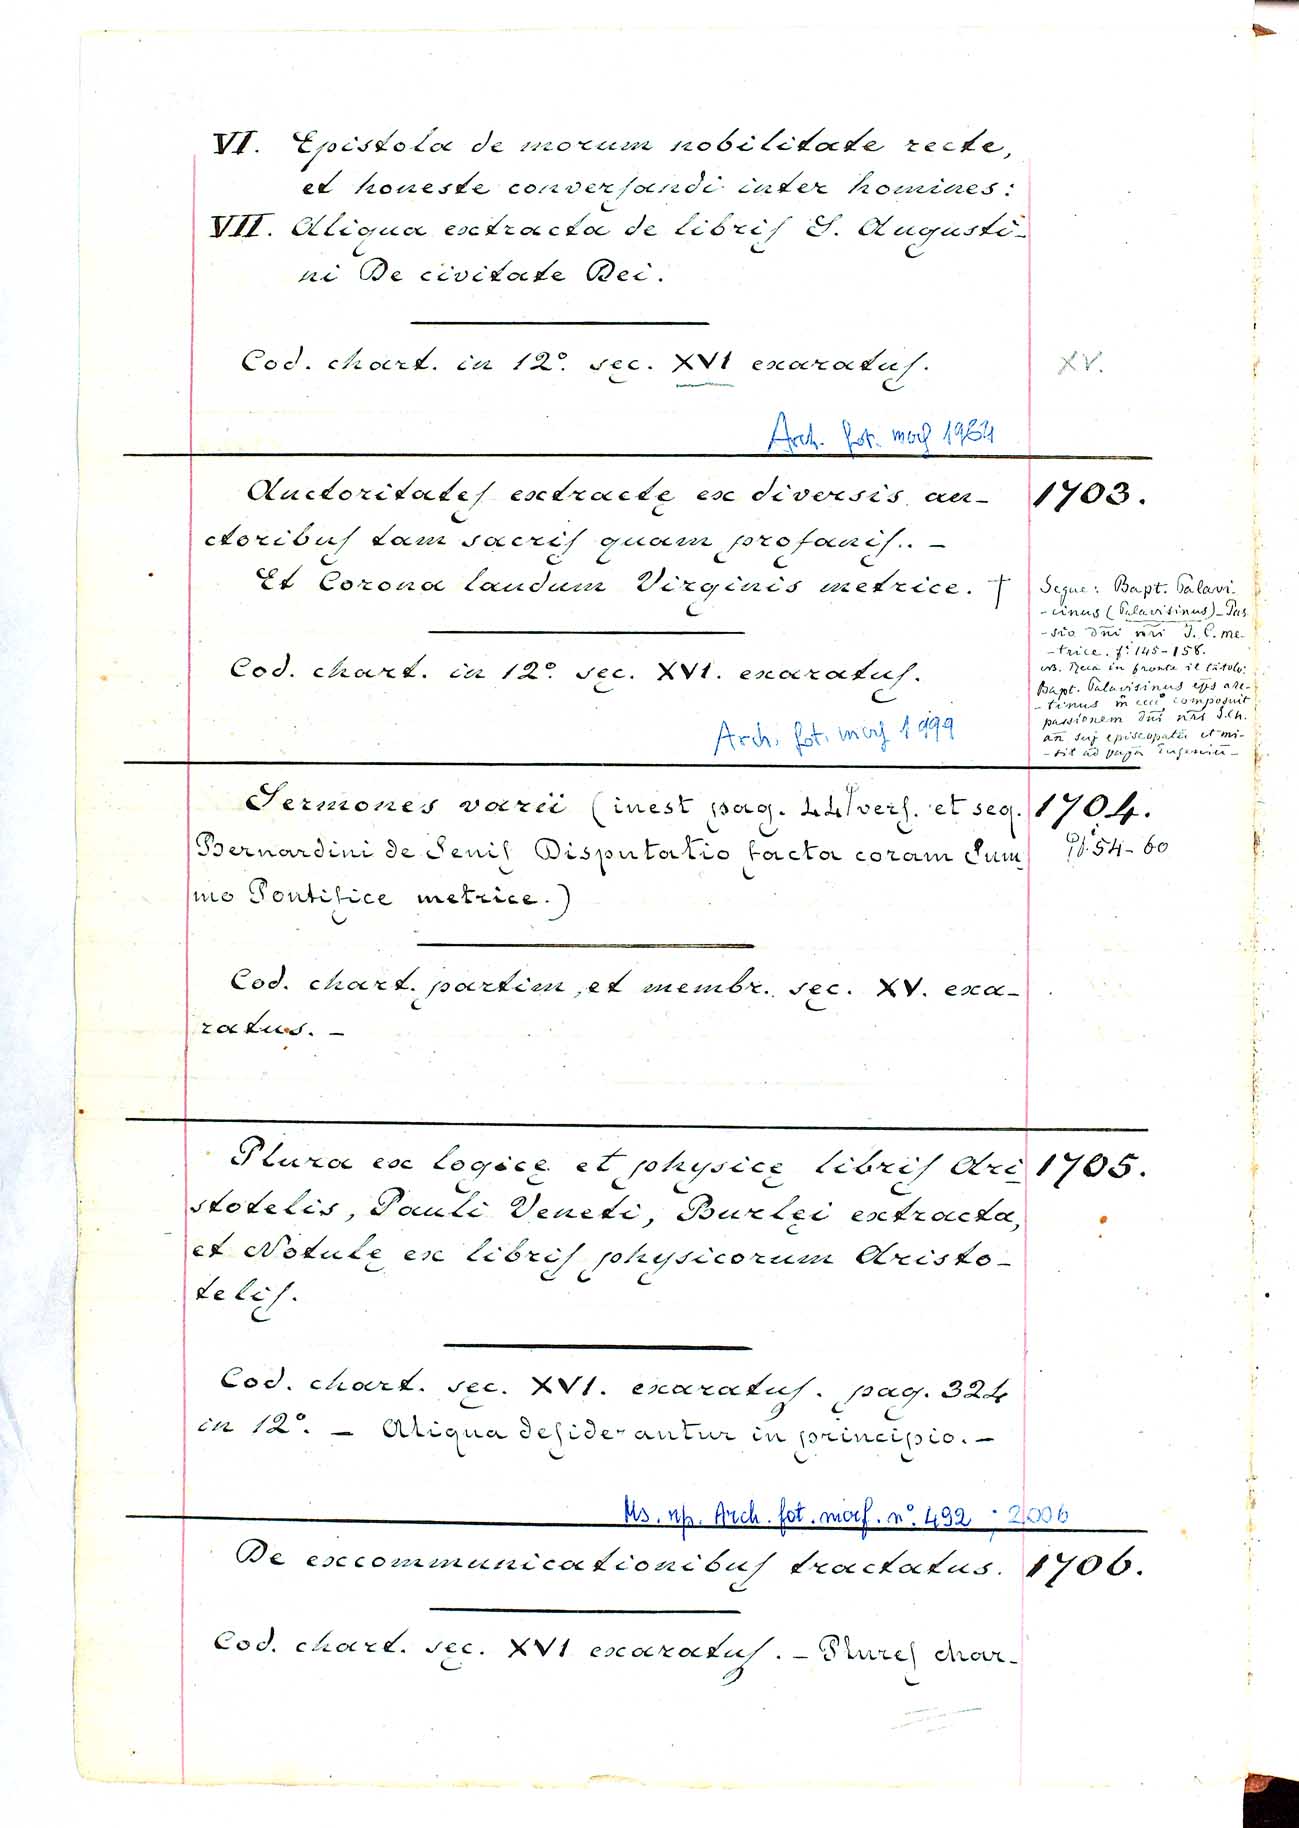 VI. Epistola de morum nobilitate recte,
et honeste conversandi inter homines:
VII. Aliqua extracta de libris S. Augusti-
ni De civitate Dei.
Cod. chart. in 12° sęc. XVI exaratus.
XV.
Arch. fot. mosf 1984
Auctoritates extractę ex diversis au-
1703.
ctoribus tam sacris quam profanis.. -
Et Corona laudum Virginis metrice. †
Segue: Bapt. Palavi-
-cinus (Palavisinus) - Pas
-sio dñi nñi J. C. me-
-trice. f. 145-158.
NB. Reca in fronte il titolo:
Bapt. Palavisinus ep̃s
-tinus composuit
passionem dñi nñi J. ch.
añ sui episcopatũ et mi-
-sit ad papã Eugeniũ -
Cod. chart. in 12° sęc. XVI. exaratus.
Arch. fot. mosf 1999
Sermones varii (inest pag. 44 vers. et seq.
1704.
Bernardini de Senis Disputatio facta coram Sum
54-60
mo Pontifice metrice.)
Cod. chart. partim, et membr. sęc. XV. exa-
ratus. -
Plura ex logicę et physicę libris Ari
1705.
stotelis, Pauli Veneti, Burlęi extracta,
et Notulę ex libris physicorum Aristo-
telis.
Cod. chart. sęc. XVI. exaratus. pag. 324
in 12°. - Aliqua desiderantur in principio. -
Ms. np. Arch. fot. mosf. n°. 492 ; 2006
De excommunicationibus tractatus.
1706.
Cod. chart. sęc. XVI exaratus. - Plures char-